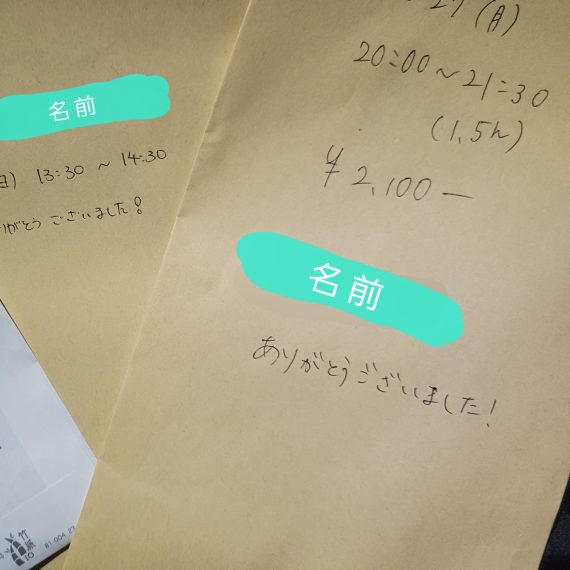 名前
日) 13:30 ~ 14:30
りがとう ございました!
27 (月)
20:00 ~ 21:30
(1.5h)
¥2,100 —
名前
ありがとうございました!
竹紙
10